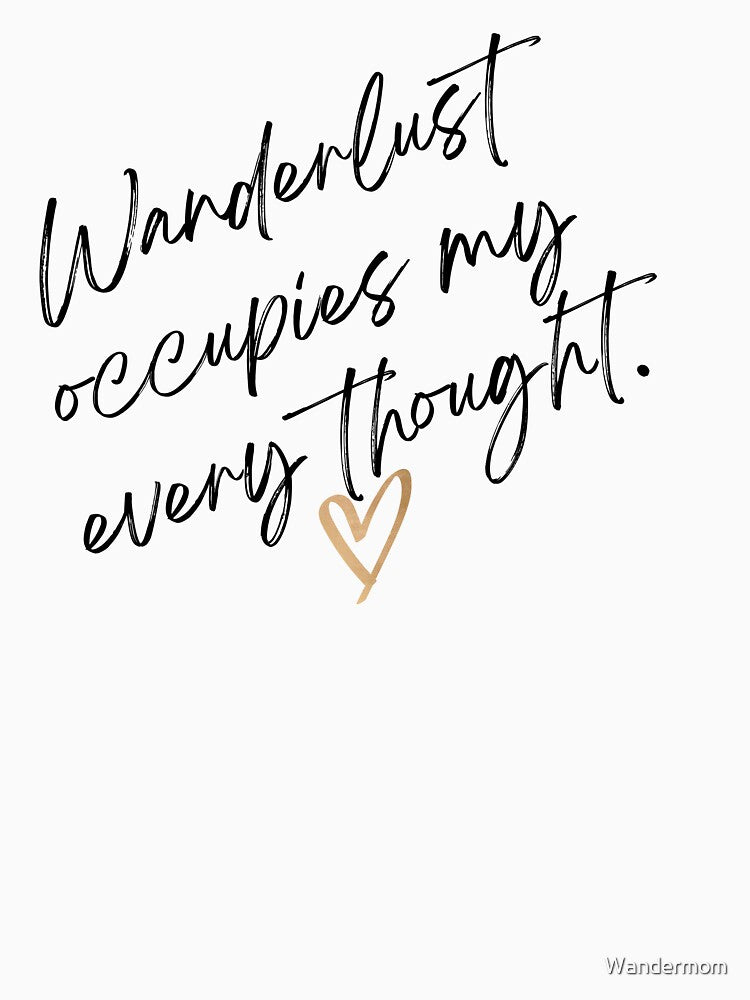 Wanderlust
occupies my
every thought.
Wandermom